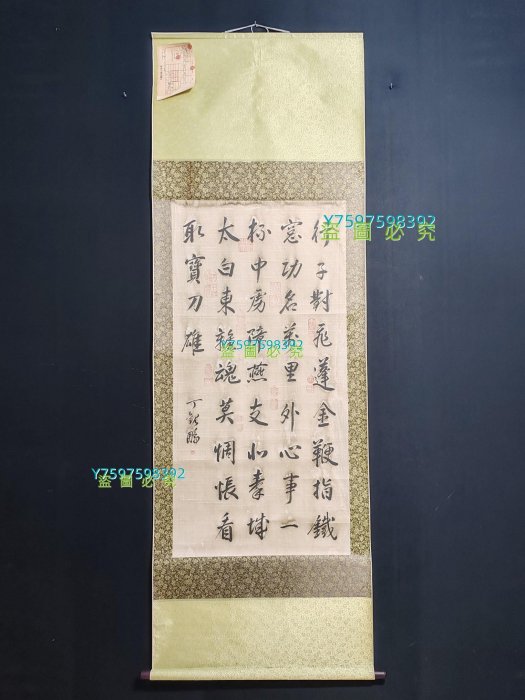 行子對飛蓬金鞭指鐵
窓功名萬里外心事一
杯中虜障燕支北秦城
太白東離魂莫惆悵看
取寶刀雄
丁雲鵬
Y7597598392
盜圖必究
Y7597598392
盜圖必究
Y7597598392
盜圖必究